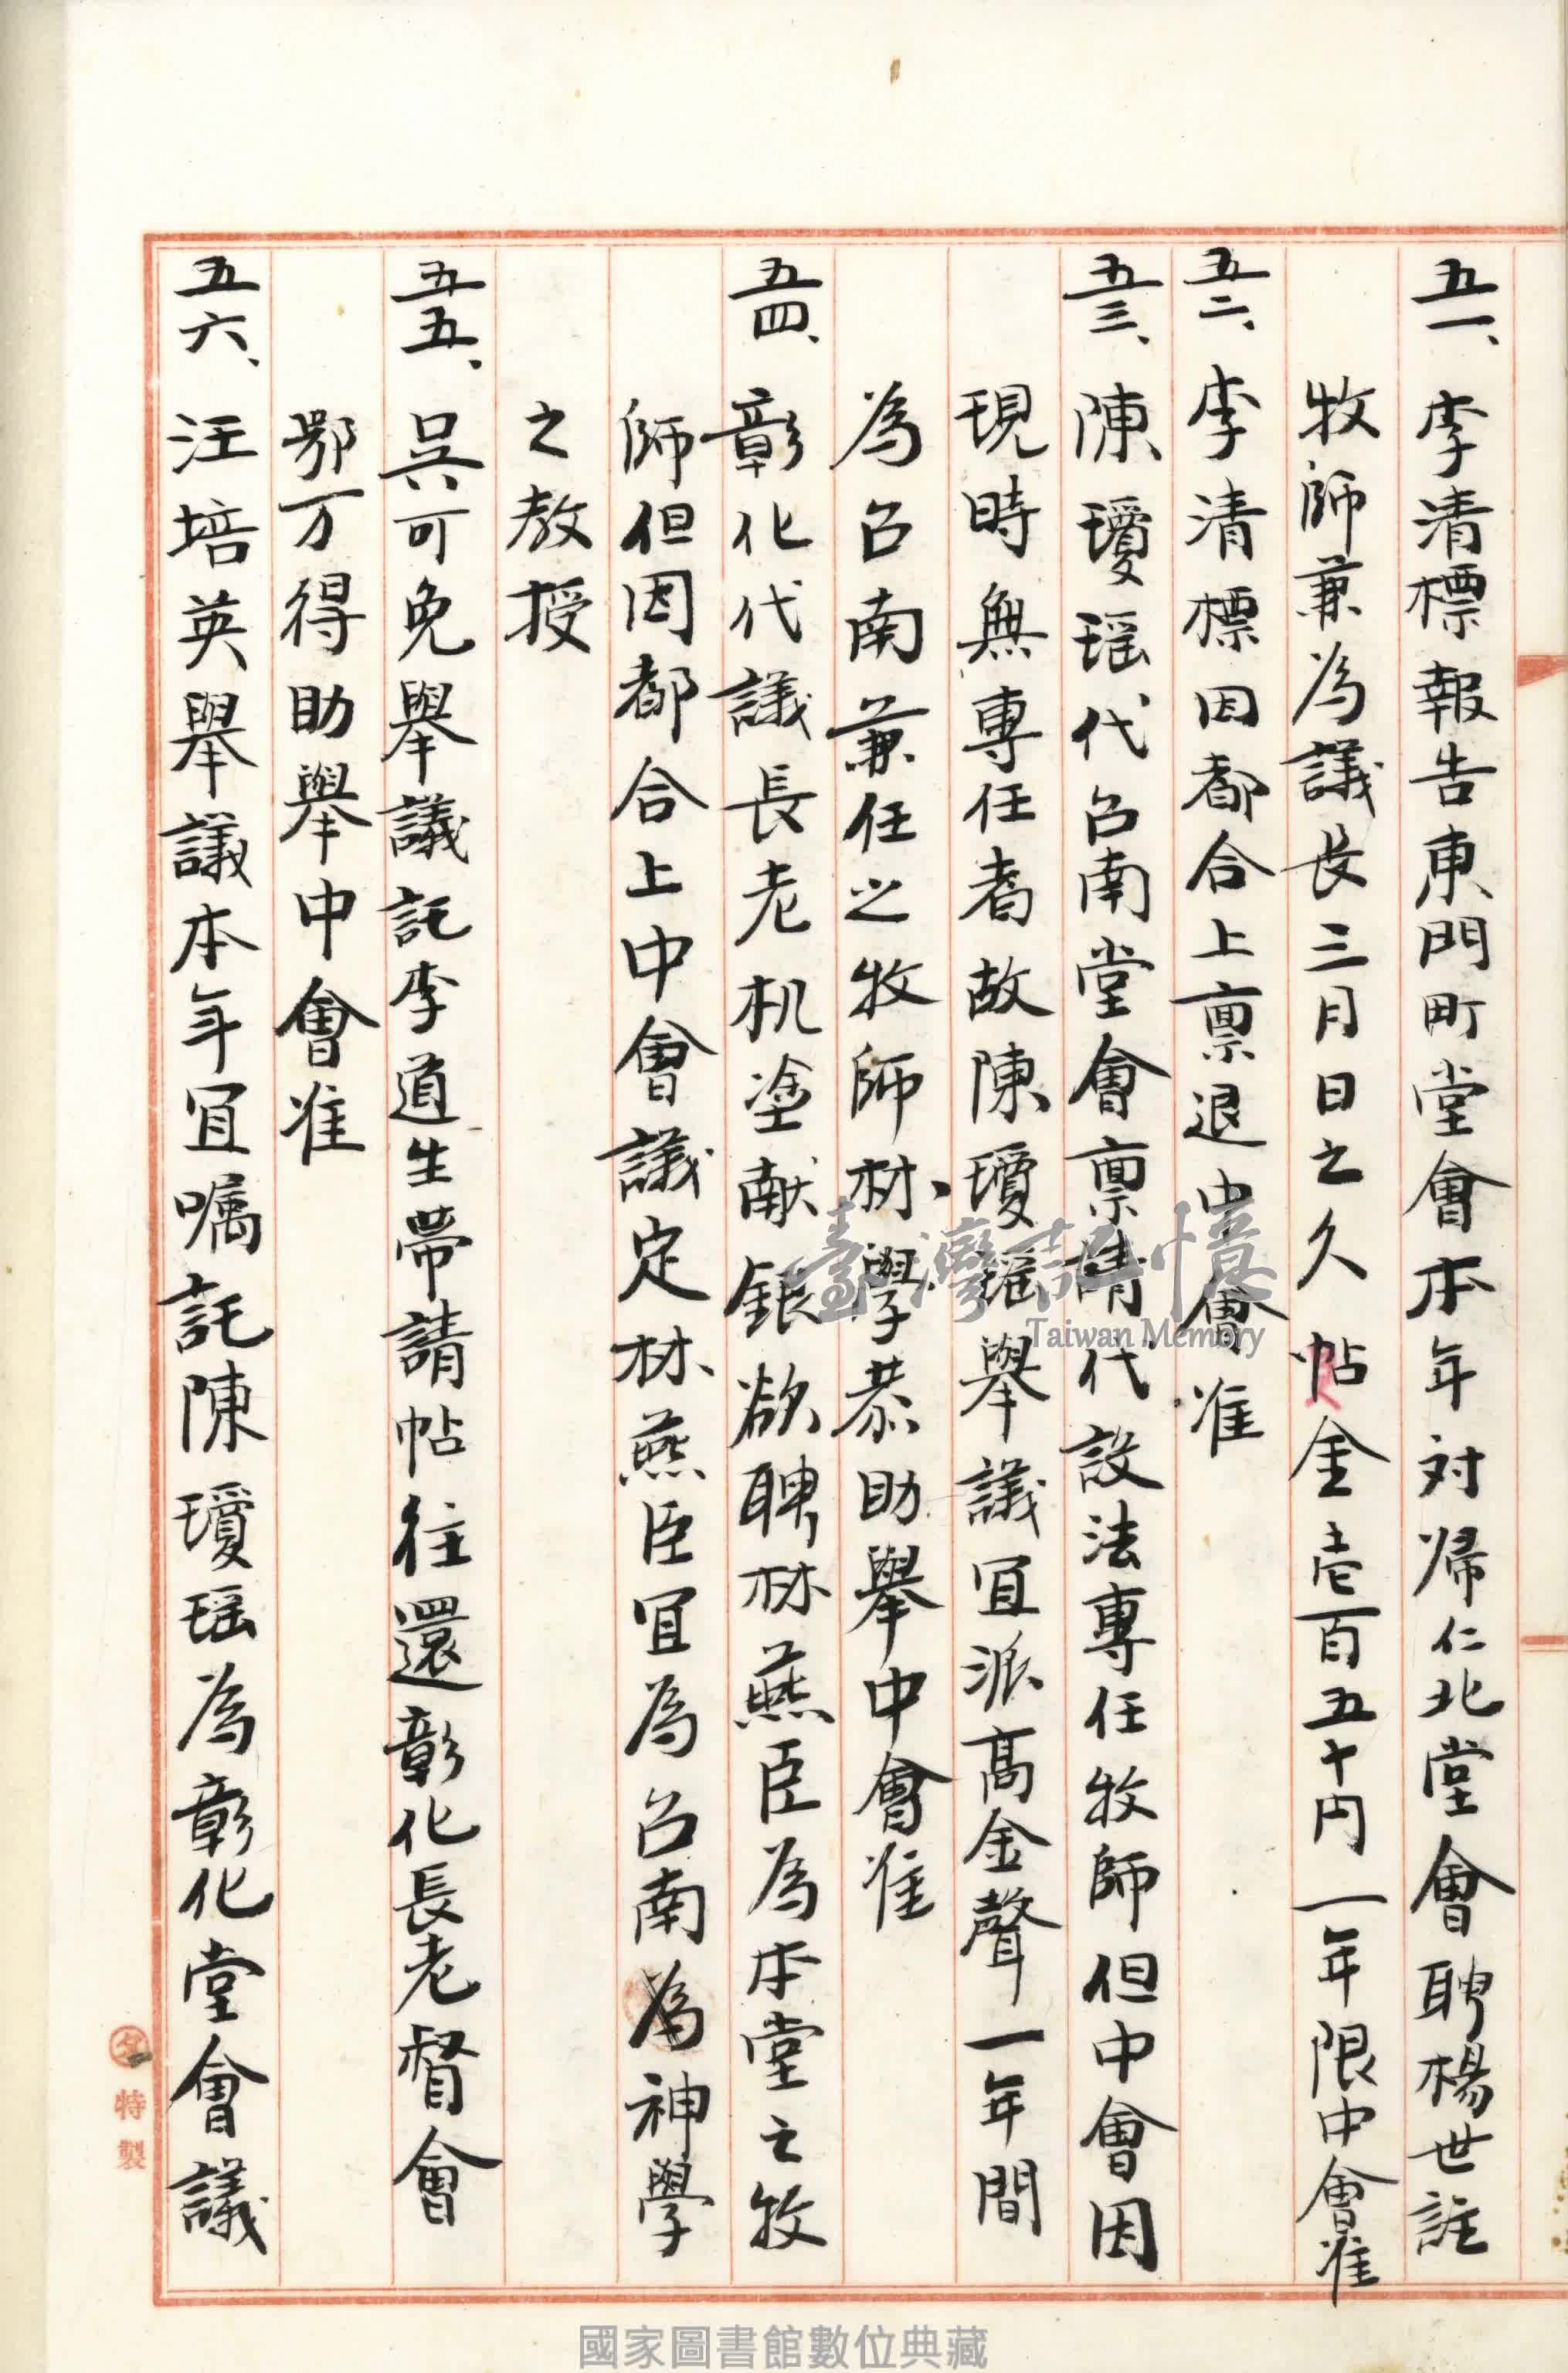 五一、李清標報告東門町堂會本年対帰仁北堂會聘楊世註
牧師兼為議長三月日之久帖金壱百五十円一年限中會准
五二、李清標因都合上禀退中會准
五三、陳瓊瑶代台南堂會禀請代設法專任牧師但中會因
現時無專任者故陳瓊瑶舉議宜派高金聲一年間
為台南兼任之牧師林學恭助舉中會准
五四、彰化代議長老杋塗献銀欲聘林燕臣為本堂之牧
師但因都合上中會議定林燕臣宜為台南為神學
之教授
五五、吳可免舉議託李道生帶請帖往還彰化長老督會
鄂万得助舉中會准
五六、汪培英舉議本年宜嘱託陳瓊瑶為彰化堂會議
特製
臺灣記憶
Taiwan Memory
國家圖書館數位典藏